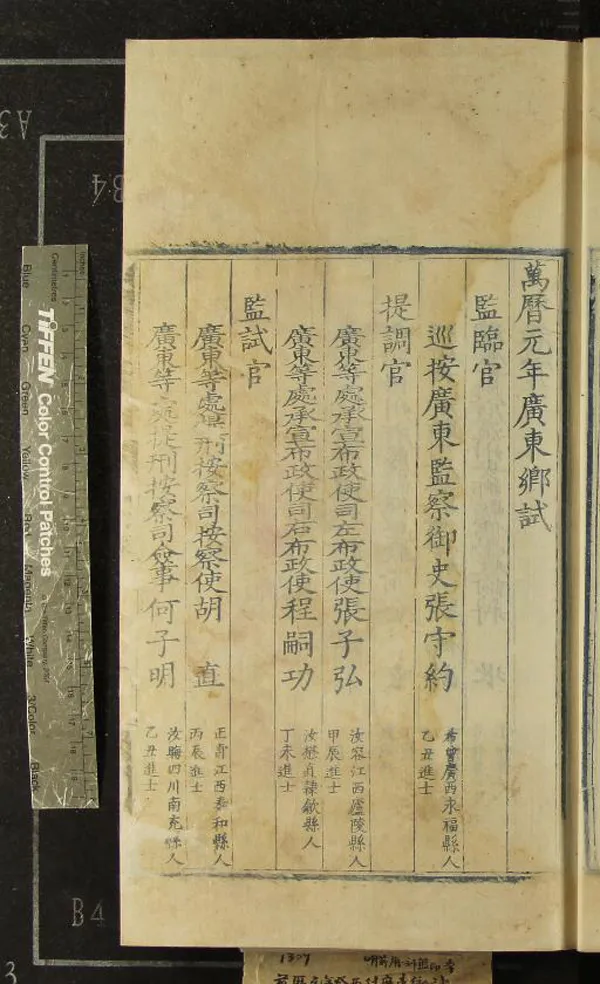 萬曆元年廣東鄉試
監臨官
巡按廣東監察御史張守約 希曾廣西永福縣人
乙丑進士
提調官
廣東等處承宣布政使司左布政使張子弘 汝容江西廬陵縣人
甲辰進士
廣東等處承宣布政使司右布政使程嗣功 汝懋直隸歙縣人
丁未進士
監試官
廣東等處提刑按察司按察使胡 直 正甫江西泰和縣人
丙辰進士
廣東等處提刑按察司僉事何子明 汝晦四川南充縣人
乙丑進士
TIFFEN Color Control Patches
Centimetres
Inches
Blue
Cyan
Green
Yellow
Red
Magenta
White
3/Color
Black
A3
B4
B4
3
1307